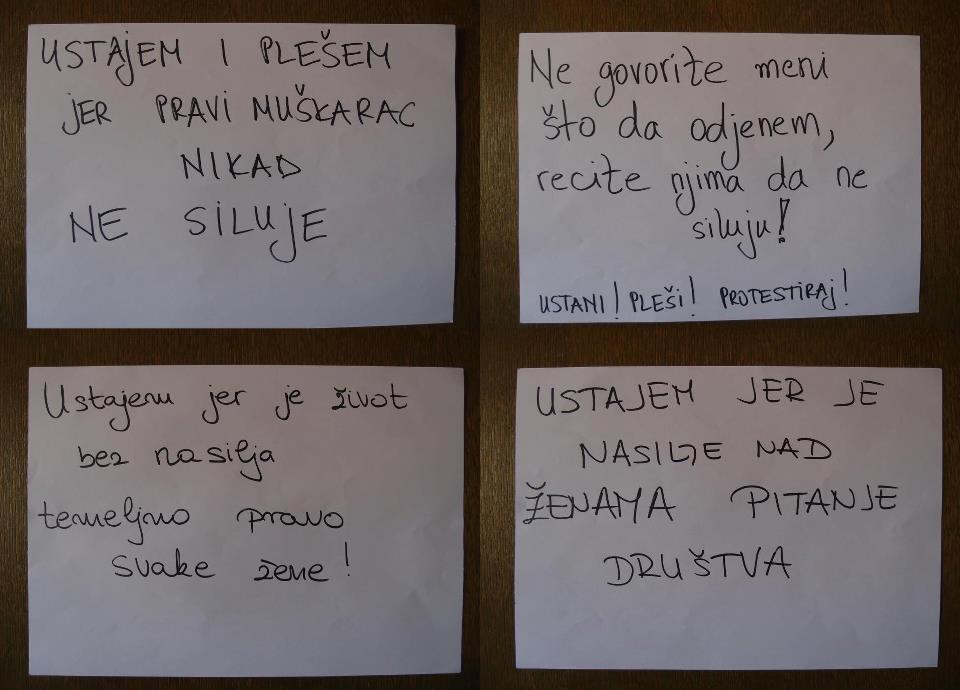 USTAJEM I PLEŠEM
JER PRAVI MUŠKARAC
NIKAD
NE SILUJE
Ne govorite meni
što da odjenem,
recite njima da ne
siluju!
USTANI! PLEŠI! PROTESTIRAJ!
Ustajem jer je život
bez nasilja
temeljno pravo
svake žene!
USTAJEM JER JE
NASILJE NAD
ŽENAMA PITANJE
DRUŠTVA